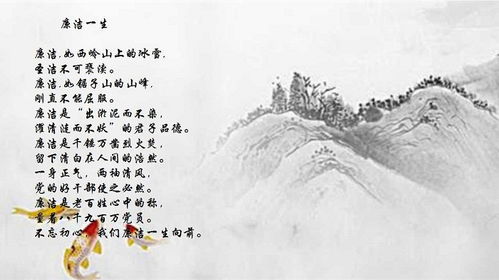 廉洁一生
廉洁,如西岭山上的冰雪,
圣洁不可亵渎。
廉洁,如锯子山的山峰,
刚直不能屈服。
廉洁是“出淤泥而不染,
濯清涟而不妖”的君子品德。
廉洁是千锤万凿烈火焚,
留下清白在人间的浩然。
一身正气,两袖清风,
党的好干部使之必然。
廉洁是老百姓心中的称,
量着八千九百万党员。
不忘初心,我们廉洁一生向前。